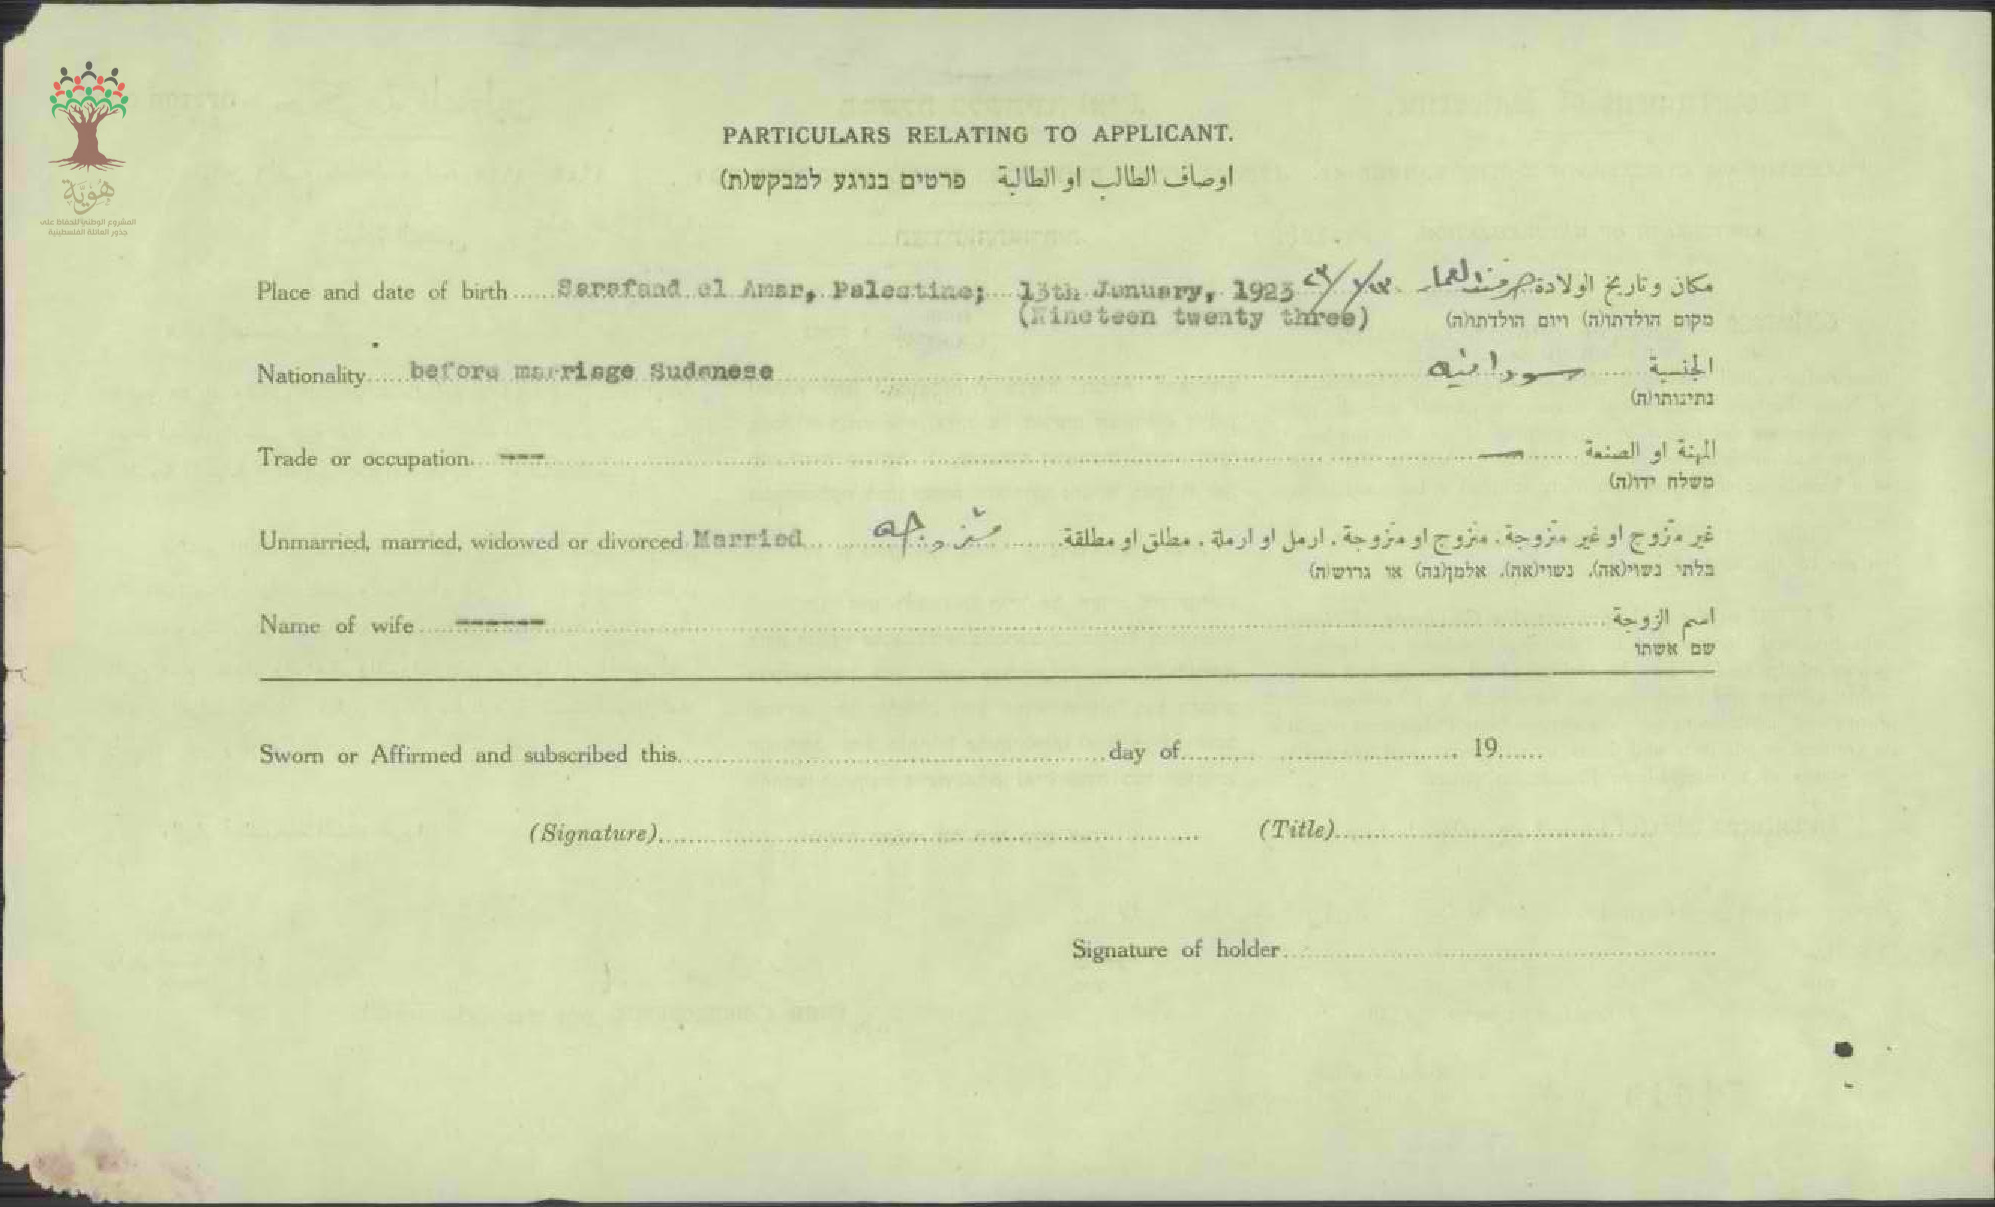 هُوِيَّة
المشروع الوطني للحفاظ على
جذور العائلة الفلسطينية
PARTICULARS RELATING TO APPLICANT.
اوصاف الطالب او الطالبة פרטים בנוגע למבקש(ת)
Place and date of birth Sarafand el Amar, Palestine; 13th January, 1923 مكان وتاريخ الولادة صرفند العمار ٢٣/١/١٣
(Nineteen twenty three) מקום הולדתו(ה) ויום הולדתו(ה)
Nationality before marriage Sudanese الجنسية سودانيه
נתינותו(ה)
Trade or occupation --- المهنة او الصنعة —
משלח ידו(ה)
Unmarried, married, widowed or divorced Married غير متزوج او غير متزوجة، متزوج او متزوجة، ارمل او ارملة، مطلق او مطلقة متزوجه
בלתי נשוי(אה), נשוי(אה), אלמן(נה) או גרוש(ה)
Name of wife ------ اسم الزوجة
שם אשתו
Sworn or Affirmed and subscribed this day of 19
(Signature) (Title)
Signature of holder